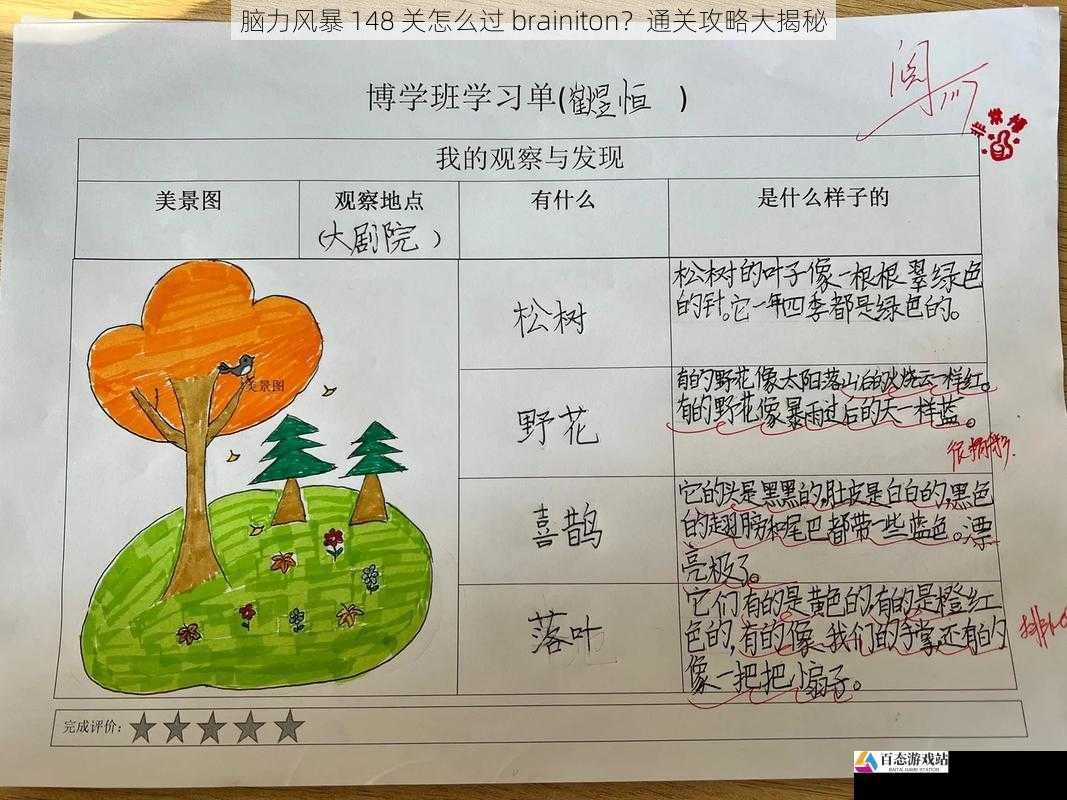 脑力风暴 148 关怎么过 brainiton？通关攻略大揭秘
阅
博学班学习单(崔煜恒 )
非常棒
我的观察与发现
美景图
观察地点
(大剧院 )
有什么
是什么样子的
美景图
松树
松树的叶子像一根根翠绿色
的针。它一年四季都是绿色的。
野花
有的野花像太阳落山后的火烧云一样红。
有的野花像暴雨过后的天一样蓝。
很独特
喜鹊
它的头是黑黑的,肚皮是白白的,黑色
的翅膀和尾巴都带一些蓝色。漂
亮极了。
落叶
它们有的是黄色的,有的是橙红
色的,有的像我们的手掌,还有的
像一把把小扇子。
排比
完成评价：
百态游戏站
BAITAI GAME STATION